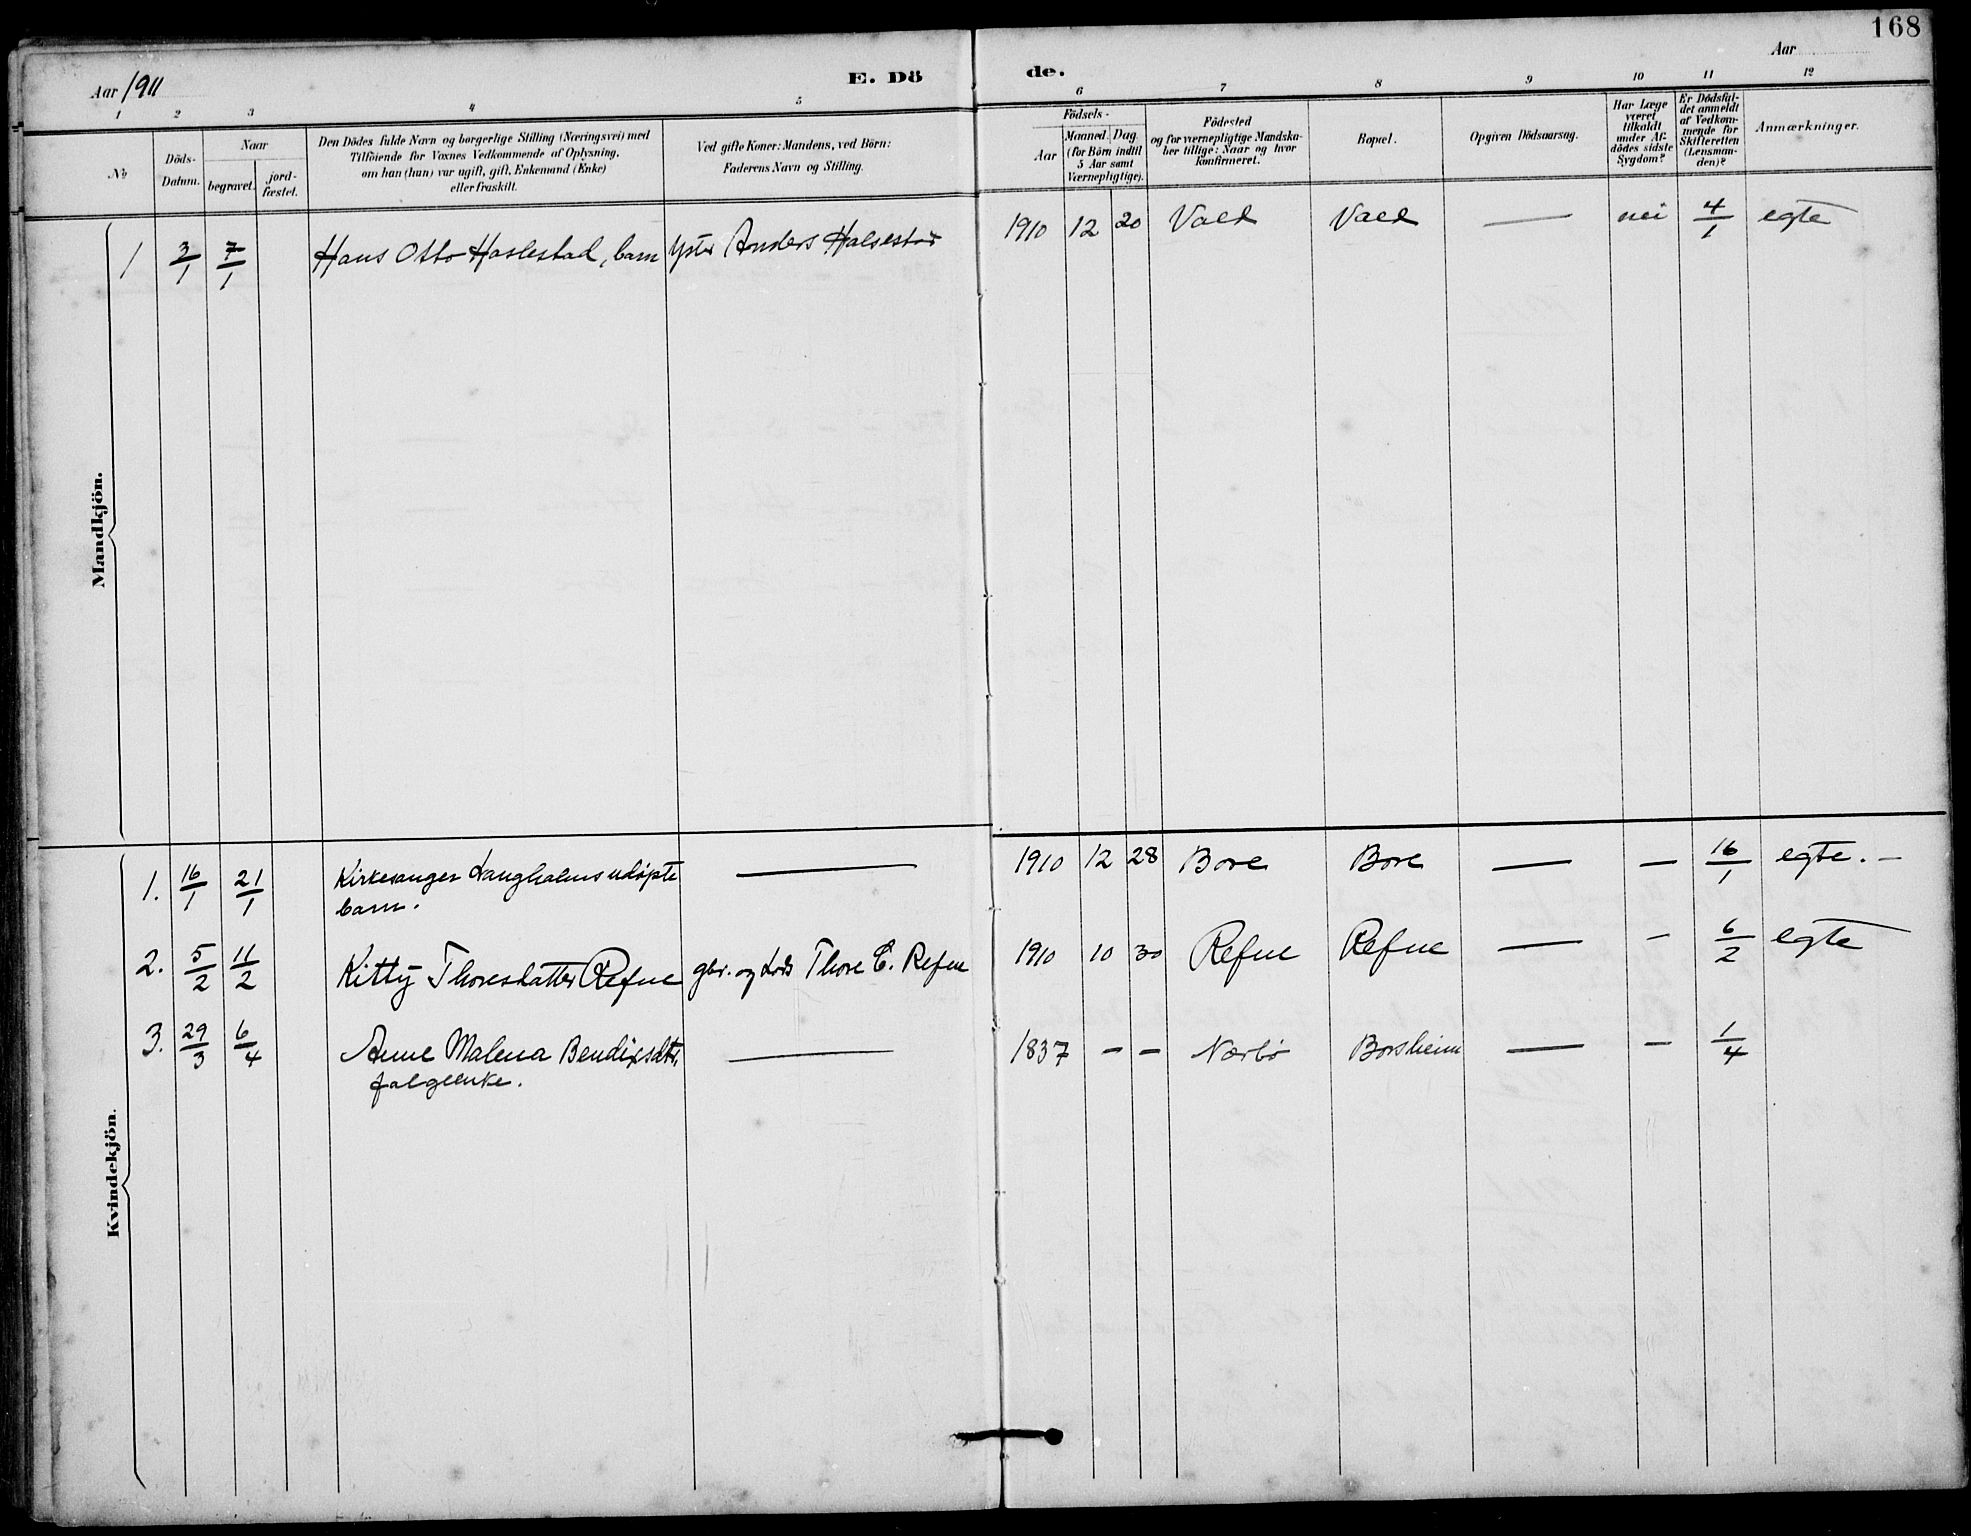 168
Aar 1911
E. Dö
de.
Aar
1 2 3 4 5 6 7 8 9 10 11 12
№
Döds-
Datum.
Naar
begravet.
jord-
fæstet.
Den Dödes fulde Navn og borgerlige Stilling (Næringsvei) med
Tilföiende for Voxnes Vedkommende af Oplysning,
om han (hun) var ugift, gift, Enkemand (Enke)
eller fraskilt.
Ved gifte Koner: Mandens, ved Börn:
Faderens Navn og Stilling.
Födsels-
Aar
Maaned. Dag.
(for Börn indtil
5 Aar samt
Værnepligtige).
Födested
og for værnepligtige Mandska-
ber tillige: Naar og hvor
konfirmeret.
Bopæl.
Opgiven Dödsaarsag.
Har Læge
været
tilkaldt
under Af-
dödes sidste
Sygdom?
Er Dödsfal-
det anmeldt
af Vedkom-
mende for
Skifteretten
(Lensman-
den)?
Anmærkninger.
Mandkjön.
1 3/1 7/1 Hans Otto Haslestad, barn Anders 1910 12 20 — nei 4/1 egte
Kvindekjön.
1. 16/1 21/1 Kirkesanger Langholms udøpte — 1910 12 28 Bore Bore — — 16/1 egte. —
barn.
2. 5/2 11/2 Kitty Thoresdatter Refne gbr. og Lods Thore E. Refne 1910 10 30 Refne Refne — — 6/2 egte
3. 29/3 6/4 Anne Malena Bendixsdtr, — 1837 — — Nærbø Borsheim — — 1/4